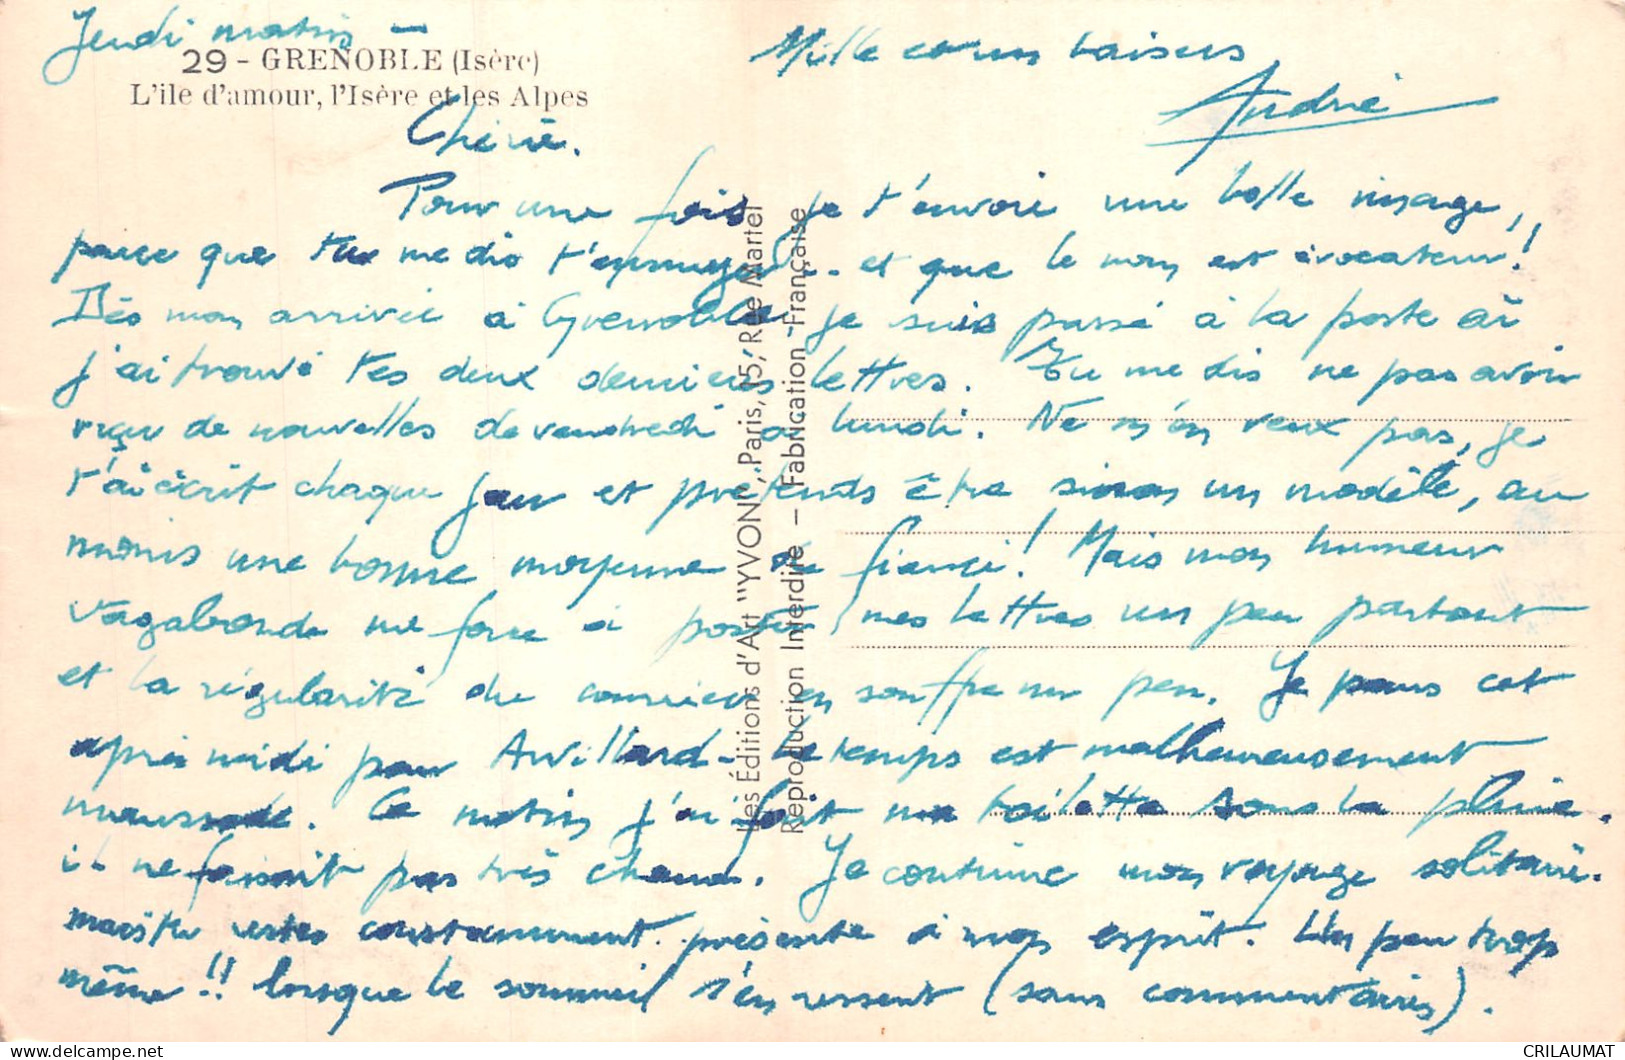 Jeudi matin -
29 - GRENOBLE (Isère)
L'ile d'amour, l'Isère et les Alpes
Chérie.
Pour une fois je t'envoie une belle image,
parce que tu me dis t'ennuyer - et que le nom est évocateur!
Dès mon arrivée à Grenoble je suis passé à la poste où
j'ai trouvé tes deux dernières lettres. Tu me dis ne pas avoir
reçu de nouvelles de vendredi à lundi. Ne m'en veux pas, je
t'ai écrit chaque jour et prétends être sinon un modèle, au
moins une bonne moyenne de fiancé! Mais mon humeur
vagabonde me force à poster mes lettres un peu partout
et la régularité du courrier en souffre un peu. Je pars cet
après midi pour Arvillard - Le temps est malheureusement
maussade. Ce matin j'ai fait ma toilette sous la pluie.
il ne faisait pas très chaud. Je continue mon voyage solitaire.
mais tu restes constamment présente à mon esprit. Un peu trop
même!! lorsque le sommeil s'en ressent (sans commentaires).
Mille et un baisers
André
Les Éditions d'Art "YVON", Paris, 15, Rue Martel
Reproduction Interdite - Fabrication Française
CRILAUMAT